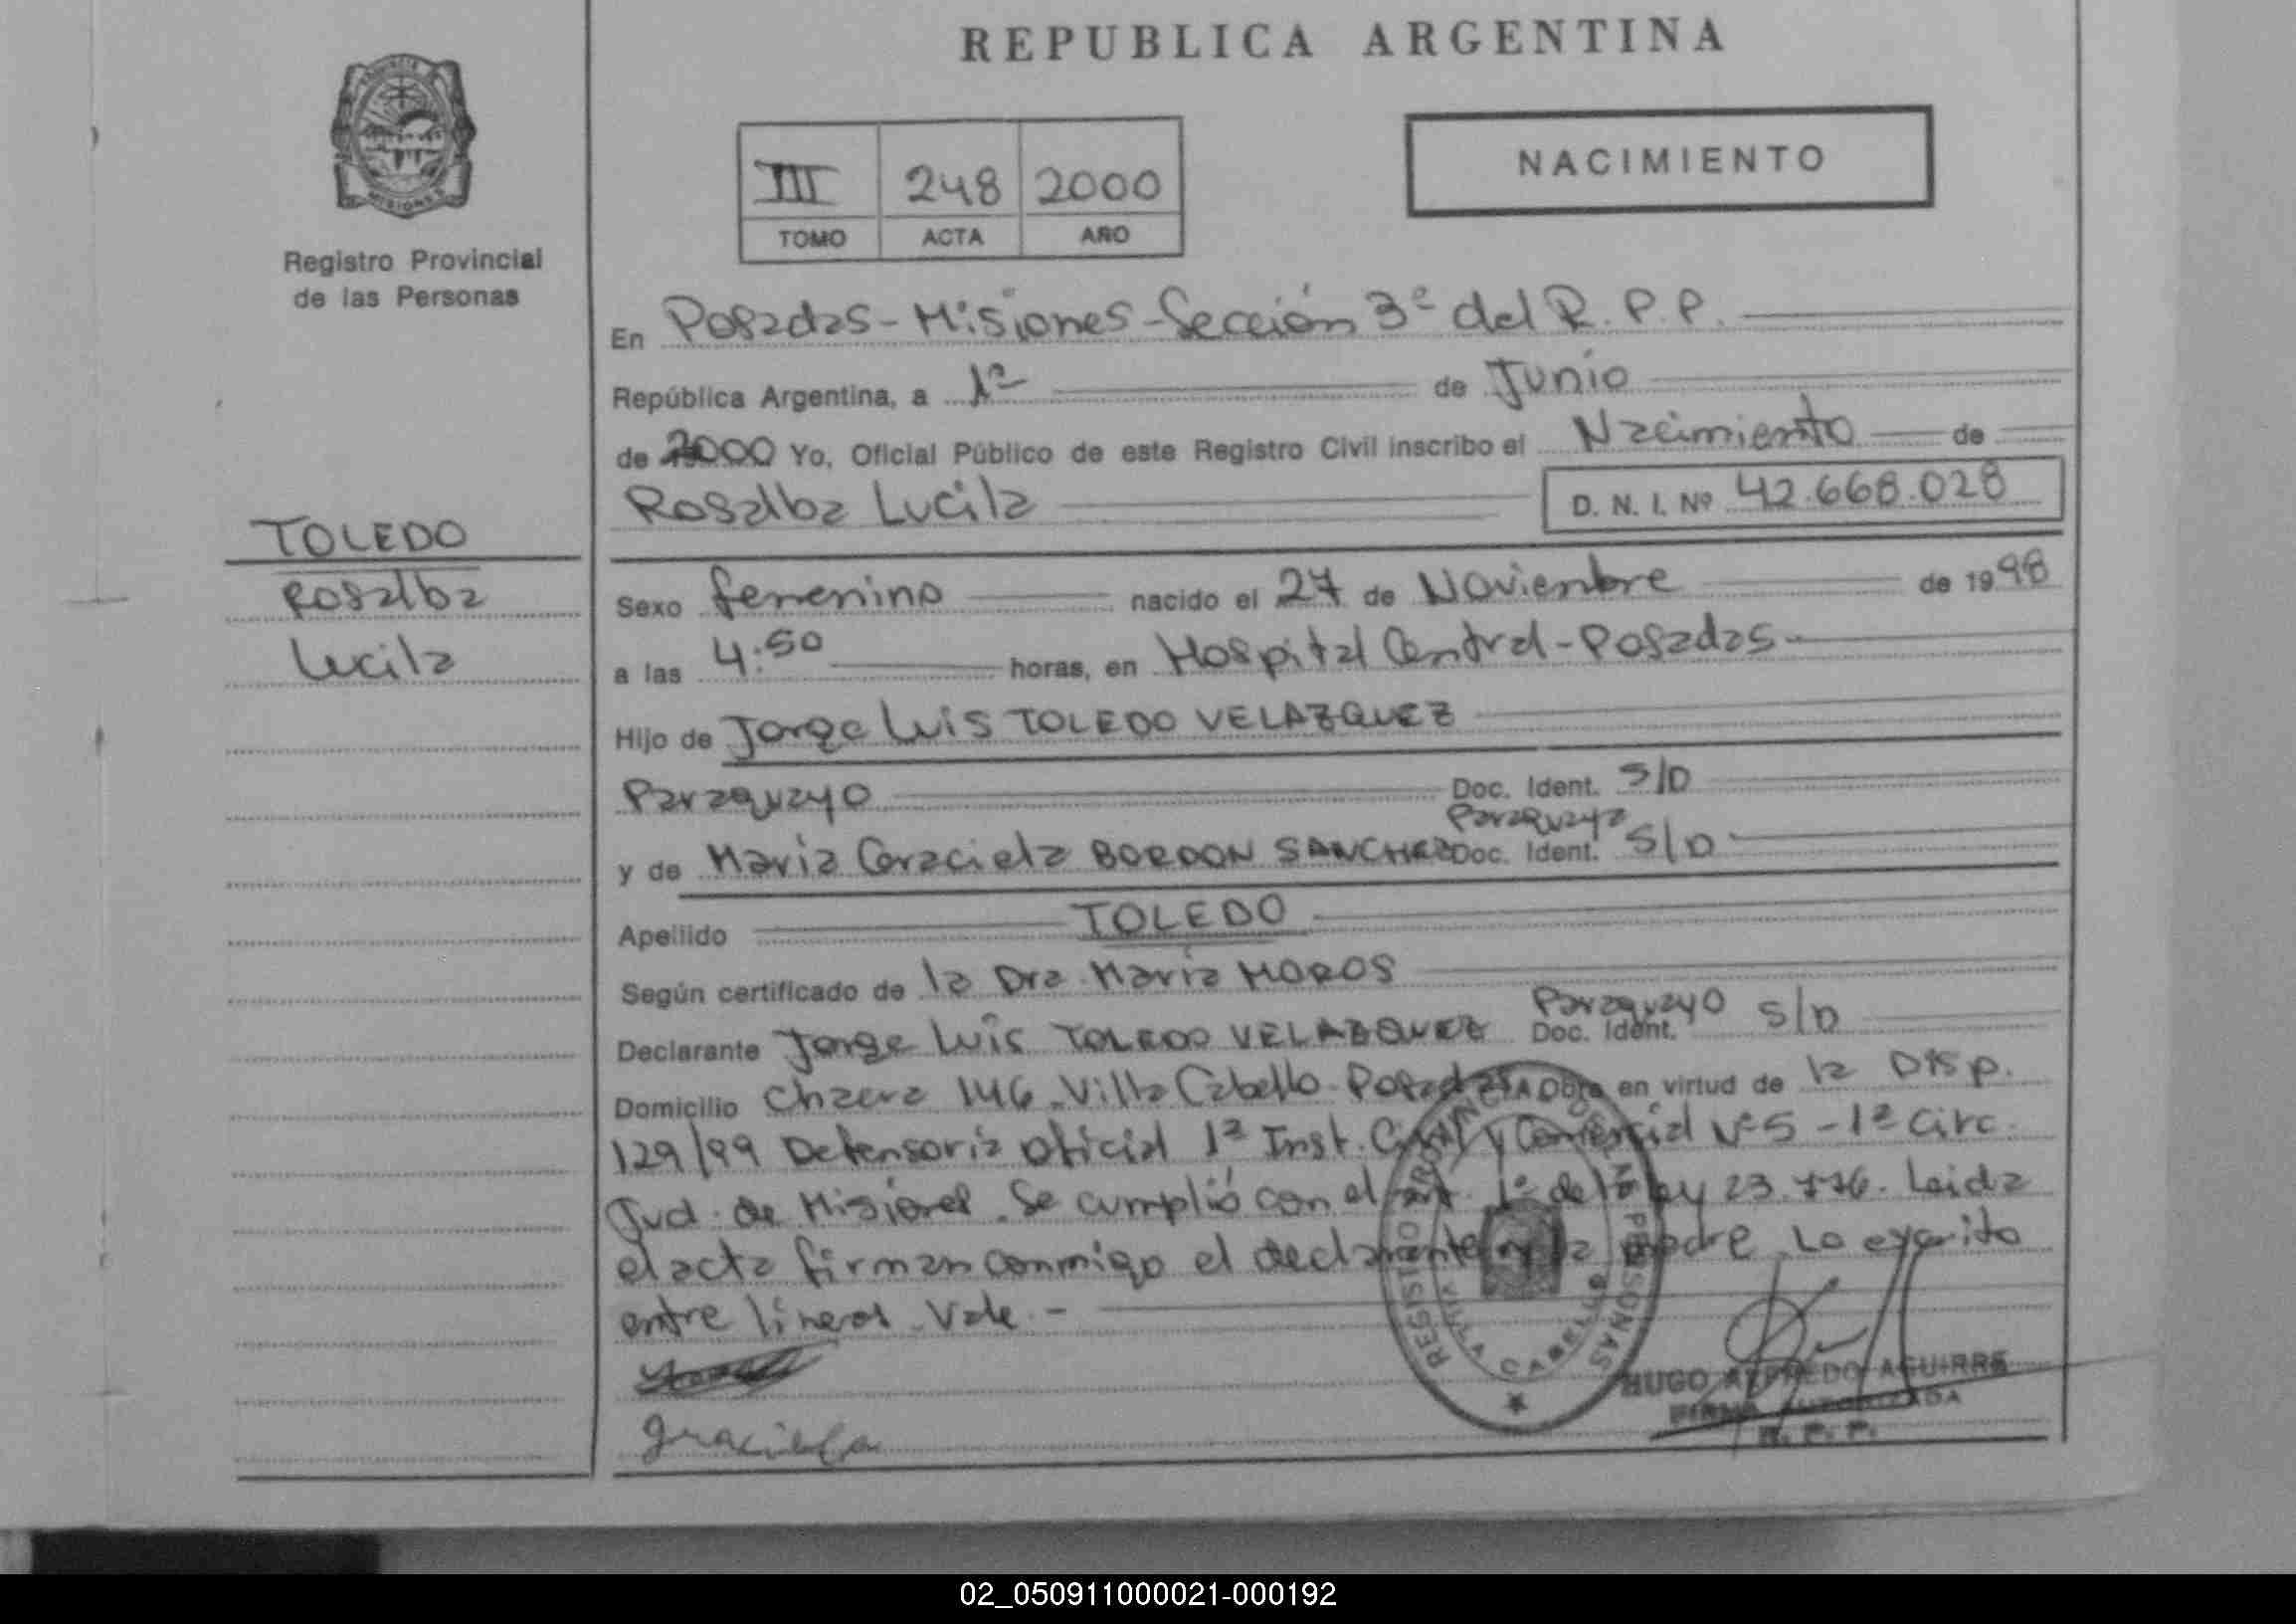 REPUBLICA ARGENTINA
PROVINCIA DE
MISIONES
Registro Provincial
de las Personas
III 248 2000
TOMO ACTA AÑO
NACIMIENTO
En Posadas - Misiones - Sección 3ª del R.P.P.
República Argentina, a 1º de Junio
de 2000 Yo, Oficial Público de este Registro Civil inscribo el Nacimiento de
Rosalba Lucila D. N. I. Nº 42.668.028
TOLEDO
Rosalba
Lucila
Sexo femenino nacido el 27 de Noviembre de 1998
a las 4:50 horas, en Hospital Central - Posadas -
Hijo de Jorge Luis TOLEDO VELAZQUEZ
Paraguayo Doc. Ident. S/D
Paraguaya
y de Maria Graciela BORDON SANCHEZ Doc. Ident. S/D
Apellido TOLEDO
Según certificado de la Dra. Maria MOROS
Paraguayo
Declarante Jorge Luis TOLEDO VELAZQUEZ Doc. Ident. S/D
Domicilio Chacra 146 - Villa Cabello - Posadas Obra en virtud de la Disp.
129/99 Defensoria Oficial 1ª Inst. Civil y Comercial Nº 5 - 1ª Circ.
Jud. de Misiones. Se cumplió con el art. 1º de la ley 23.776. Leida
el acta firman conmigo el declarante y la madre. Lo escrito
entre lineas. Vale. -
graciela
REGISTRO PROVINCIAL DE LAS PERSONAS
VILLA CABELLO
HUGO ALFREDO AGUIRRE
FIRMA AUTORIZADA
R. P. P.
02_050911000021-000192